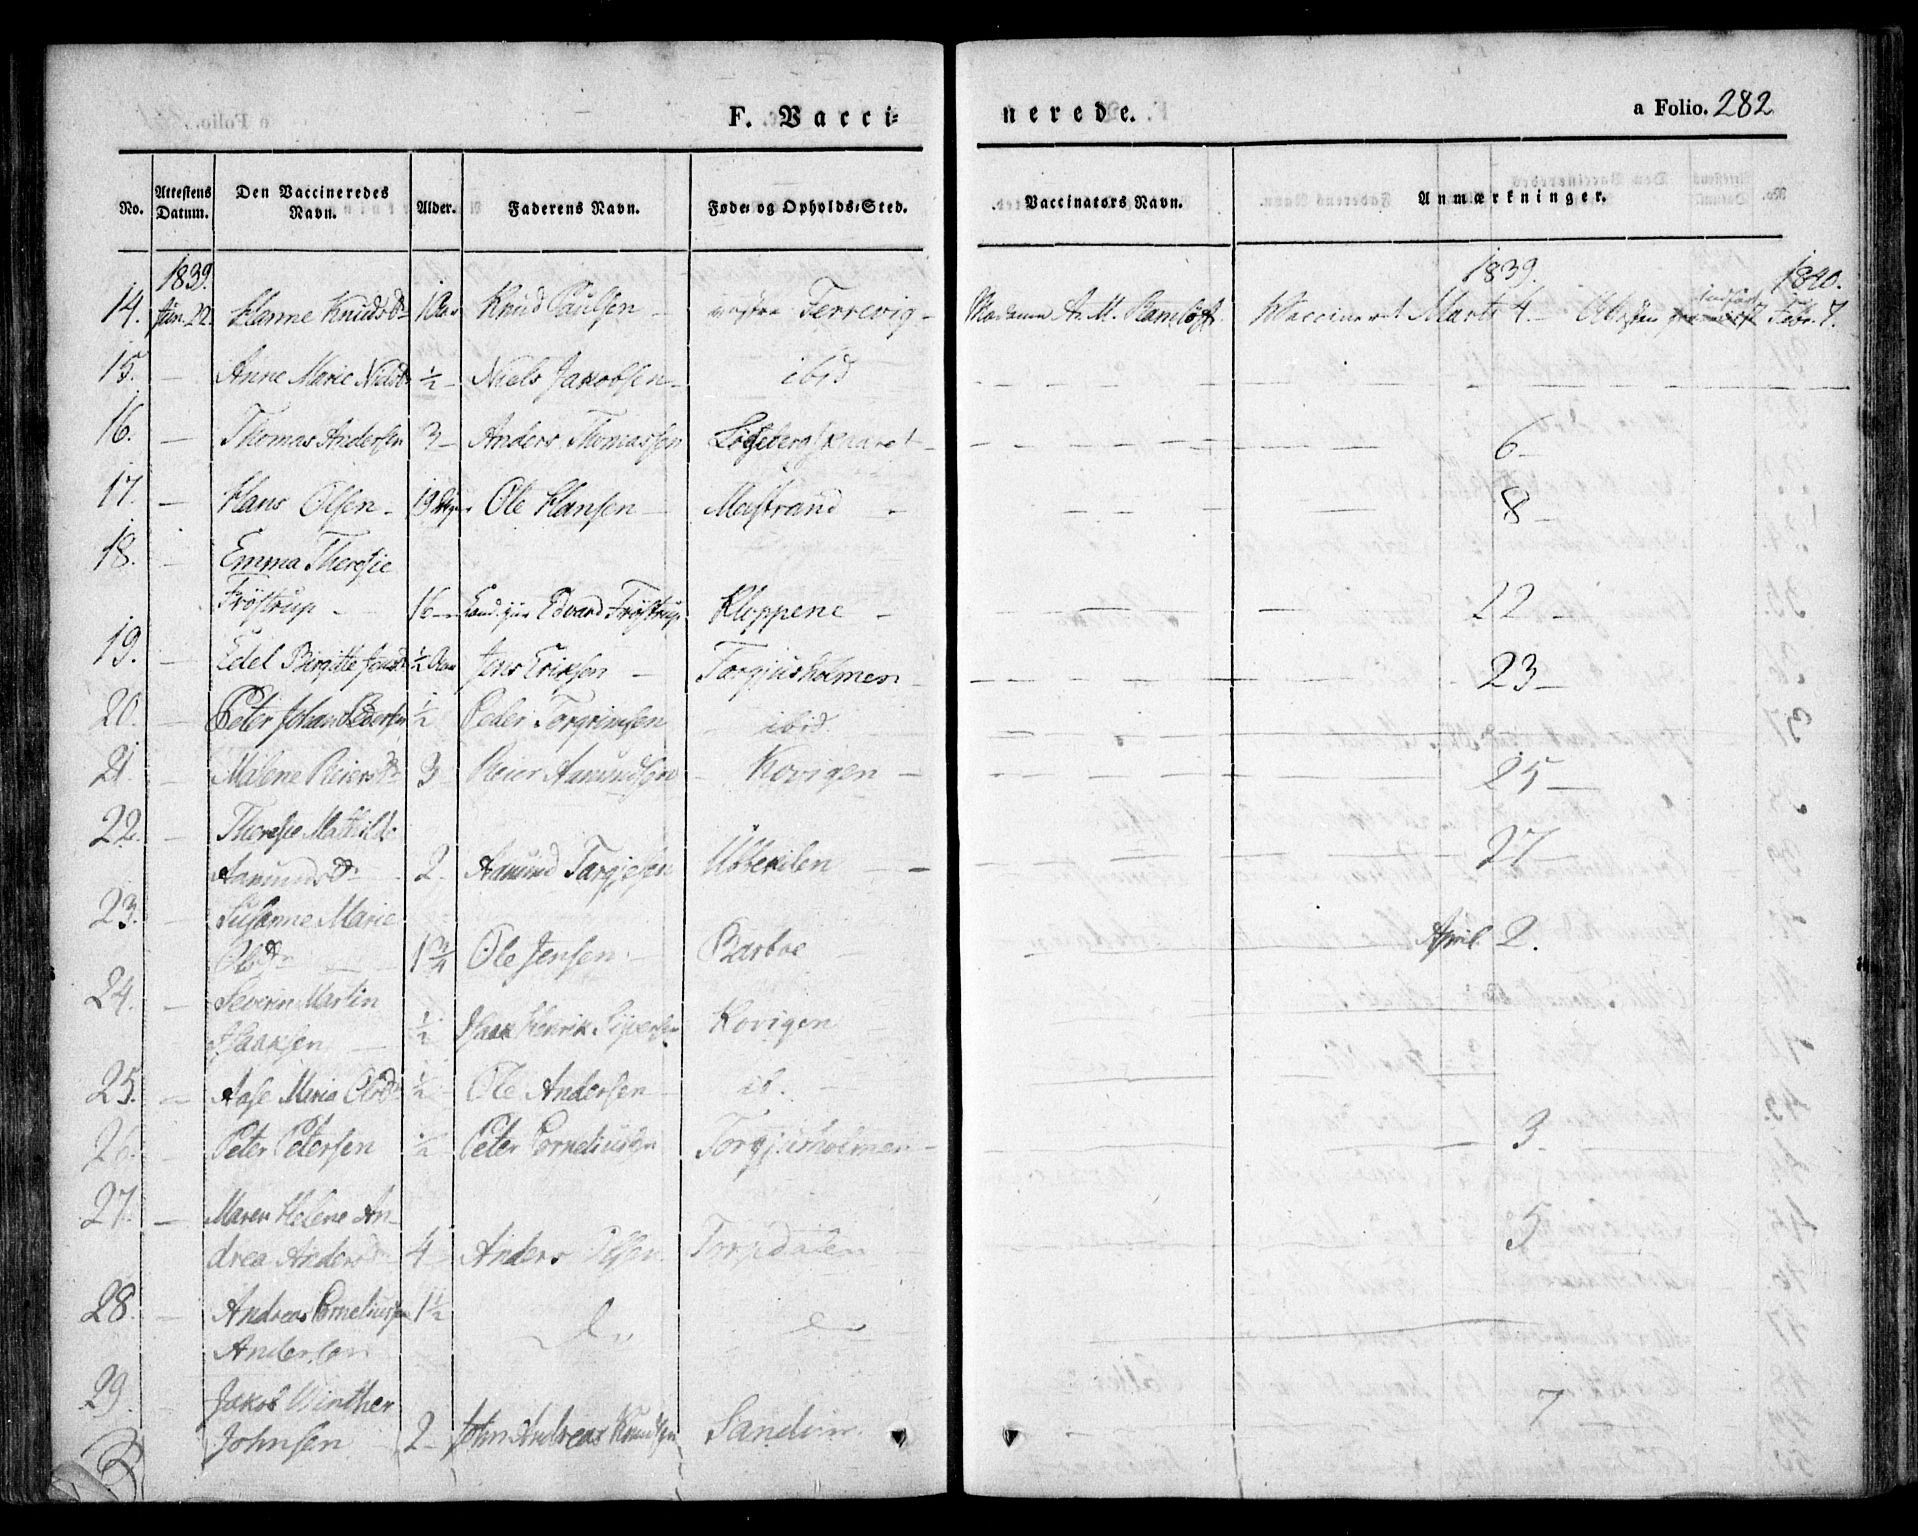 F. Vacci=
nerede.
a Folio. 282
No.
Attestens Datum.
Den Vaccineredes Navn.
Alder.
Faderens Navn.
Føde= og Opholds=Sted.
Vaccinators Navn.
Anmærkninger.
1839.
1839.
1840.
14. Jun. 22. Hanne Knudsd. 1 Aar Knud Paulsen Ferrevig Madame A. M. Vaccineret Marts 4. Febr. 7.
15. — Anne Marie Nielsd. ½ — Niels Jakobsen — ibid
16. — Thomas Andersen 3 — Anders Thomassen — 6 —
17. — Hans Olsen — 19 Ole Hansen — 8 —
18. — Emma Theresie
Frøstrup — 16 — Edvard Frøstrup Kloppene — 22 —
19. — Edel Birgitte Jensd. ½ Aar Jens Eriksen — Torgjusholmen — 23 —
20. — Peter Johan Pedersen ½ Peder Torgrimsen ibid.
21. — Malene Reiersd. 3 — Reier Aamundsen — Kovigen — 25 —
22. — Theresie Mathilde
Aamundsd. 2. Aamund Targjesen Ubbekilen — 27 —
23. — Susanne Marie
Olsd. 1¾ Ole Jensen — Barboe — April 2.
24. — Severin Martin
Isaaksen — ½ Isaak Henrik Kovigen
25. — Aase Maria Olsd. ½ Ole Andersen ib.
26. — Peter Petersen ½ Peter Corneliussen Torgjusholmen — 3.
27. — Maren Helene An-
drea Andersd. 4 — Anders Olsen Torpdalen 5
28. — Andreas Cornelius 1½
Andersen
29. — Jakob Winther
Johnsen 2 — John Andreas Knudsen Sandum 7